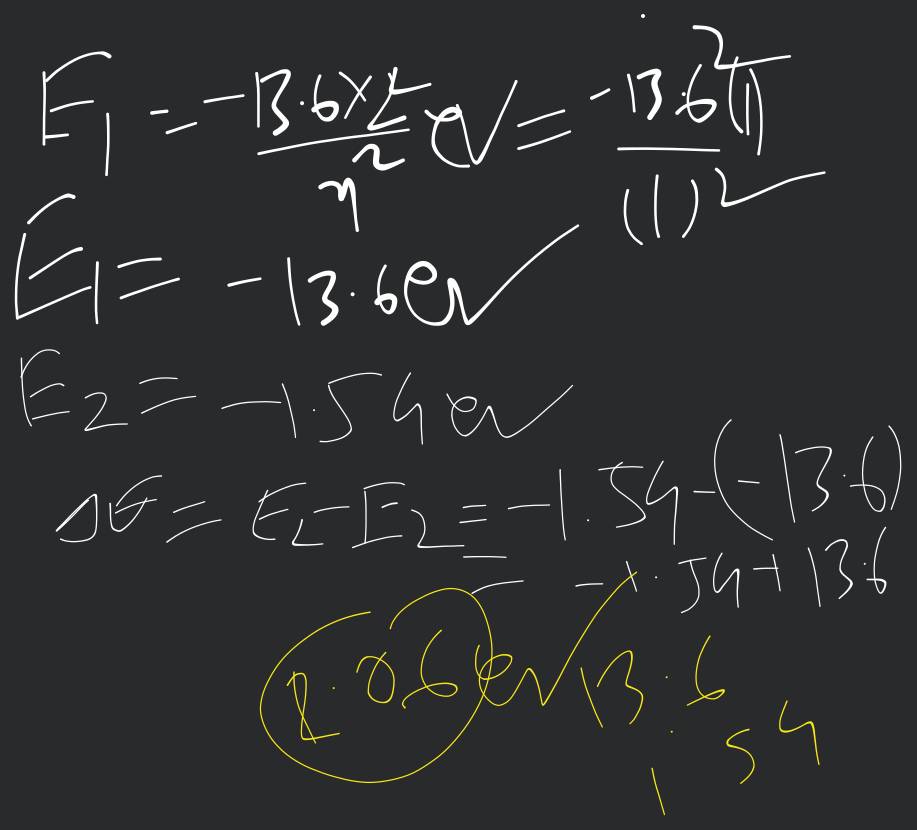 E1 = -13.6×Z²/n² eV = -13.6(1)²/(1)²
E1 = -13.6 eV
E2 = -1.54 eV
ΔE = E2 - E2 = -1.54 - (-13.6)
= -1.54 + 13.6
.06 eV 13.6
1.54